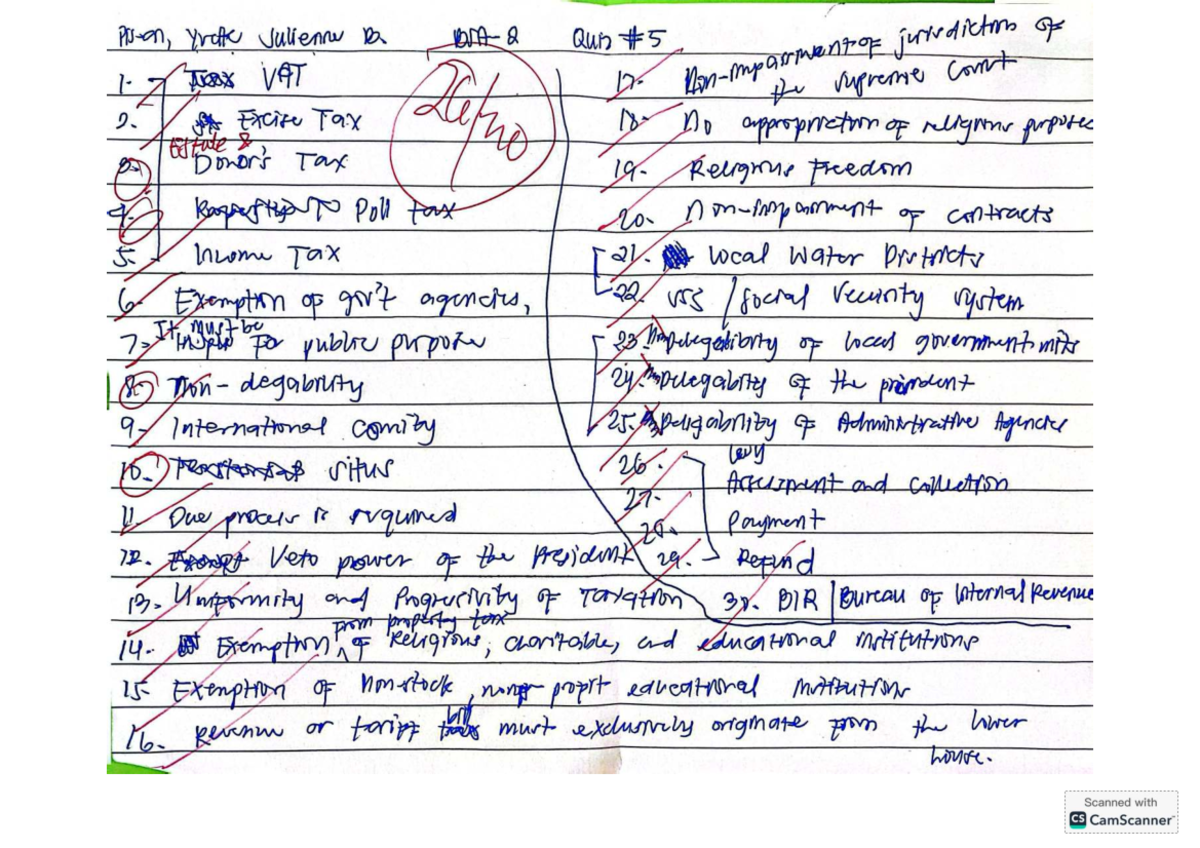 Yvette Julienne D. BSA-2 Quiz #5
26/40
1. VAT
2. Excise Tax
Estate &
3. Donor's Tax
4. Poll tax
5. Income Tax
6. Exemption of gov't agencies,
7. It must be for public purpose
8. Non-degability
9. International comity
10. situs
11. Due process is required
12. Veto power of the President
13. Uniformity and Progresivity of Taxation
from property tax
14. Exemption ^ of Religious, charitable, and educational institutions
15. Exemption of Non-stock, non- profit educational institutions
16. Revenue or tariff bill must exclusively originate from the lower
house.
17. Non-impairment of jurisdiction of
the supreme court
18. No appropriation of religious purposes
19. Religious Freedom
20. Non-impairment of contracts
21. Local Water Districts
22. SSS / Social Security System
23. Delegability of local government units
24. Delegability of the president
25. Deligability of Administrative Agencies
26. Levy
27. Assessment and collection
28. Payment
29. Refund
30. BIR | Bureau of Internal Revenue
Scanned with
CS CamScanner